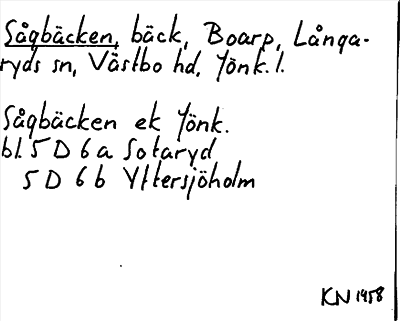 Sågbäcken, bäck, Boarp, Långa-
ryds sn, Västbo hd, Jönk. l.
Sågbäcken ek Jönk.
bl. 5 D 6 a Sotaryd
5 D 6 b Yttersjöholm
KN 1958